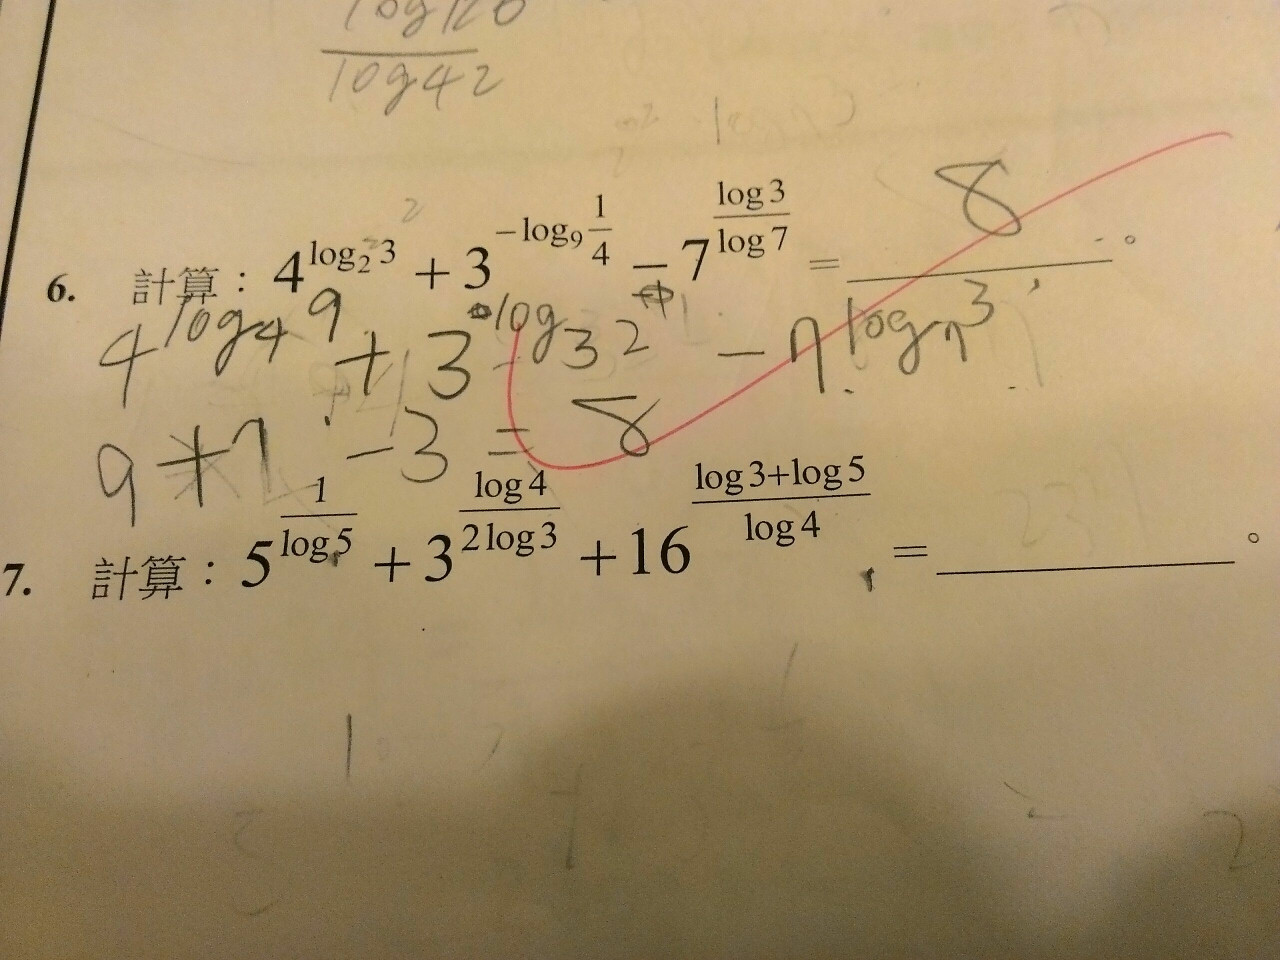 log120
log42
6. 計算：4^{log_2 3} + 3^{-log_9 \frac{1}{4}} - 7^{\frac{log 3}{log 7}} = 8 。
4^{log_4 9} + 3^{log_3 2} - 7^{log_7 3}
9 + 2 - 3 = 8
7. 計算：5^{\frac{1}{log 5}} + 3^{\frac{log 4}{2 log 3}} + 16^{\frac{log 3 + log 5}{log 4}} = 。